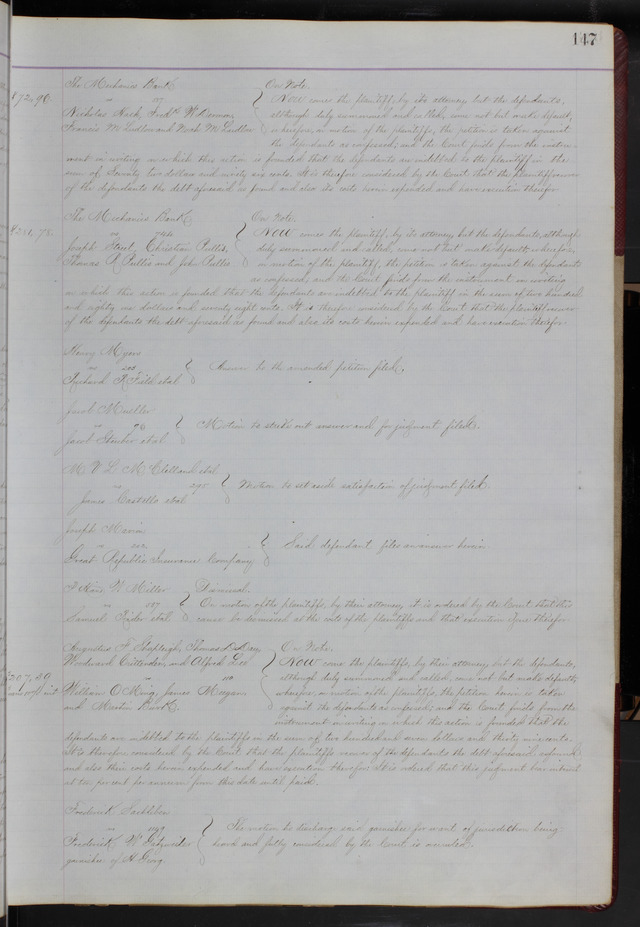 147
The Mechanics Bank On Note.
$72,96. vs 737 Now comes the plaintiff, by its attorney but the defendants,
Nicholas Heck, Fredk W. although duly summoned and called, come not but make default,
Francis M. Ludlow and Noah M. Ludlow wherefore, on motion of the plaintiffs, the petition is taken against
the defendants as confessed; and the Court finds from the instru-
ment in writing on which this action is founded that the defendants are indebted to the plaintiff in the
sum of Seventy two dollars and ninety six cents. It is therefore considered by the Court that the plaintiff recover
of the defendants the debt aforesaid as found and also its costs herein expended and have execution therefor
The Mechanics Bank On Note.
$286,78. vs 744 Now comes the plaintiff, by its attorney, but the defendants, although
Joseph Street, Christian Pullis, duly summoned and called, come not but make default, wherefore,
Thomas R. Pullis and John Pullis on motion of the plaintiff, the petition is taken against the defendants
as confessed, and the Court finds from the instrument in writing
on which this action is founded that the defendants are indebted to the plaintiff in the sum of two hundred
and eighty six dollars and seventy eight cents. It is therefore considered by the Court that the plaintiff recover
of the defendants the debt aforesaid as found and also its costs herein expended and have execution therefor
Henry Myers
vs Answer to the amended petition filed.
Richard F. Field et al
Jacob Mueller
vs 96 Motion to strike out answer and for judgment filed.
Jacob Stouber et al
M. V. L. McClelland et al
vs 295 Motion to set aside satisfaction of judgment filed.
James Castello et al
Joseph
vs Said defendant files answer herein.
Great Republic Insurance Company
F. Miller Dismissal.
vs 137 On motion of the plaintiffs, by their attorney it is ordered by the Court that this
Samuel et al cause be dismissed at the cost of the plaintiffs and that execution issue therefor
Augustus F. Shapleigh, Thomas D. Day, On Note.
Woodward Crittenden, and Alfred Lee Now come the plaintiffs, by their attorney but the defendants,
$207,39 vs 110 although duly summoned and called, come not but make default,
William O. Meig, James Morgan wherefore, on motion of the plaintiffs, the petition herein is taken
and Martin against the defendants as confessed; and the Court finds from the
instrument in writing on which this action is founded that the
defendants are indebted to the plaintiffs in the sum of two hundred and seven dollars and thirty nine cents.
It is therefore considered by the Court that the plaintiffs recover of the defendants the debt aforesaid as found
and also their costs herein expended and have execution therefor. It is ordered that this judgment bear interest
at ten per cent per annum from this date until paid.
Frederick
vs The motion to discharge said garnishee for want of jurisdiction being
Frederick W. heard and fully considered by the Court is overruled.
garnishee of H. Grong.